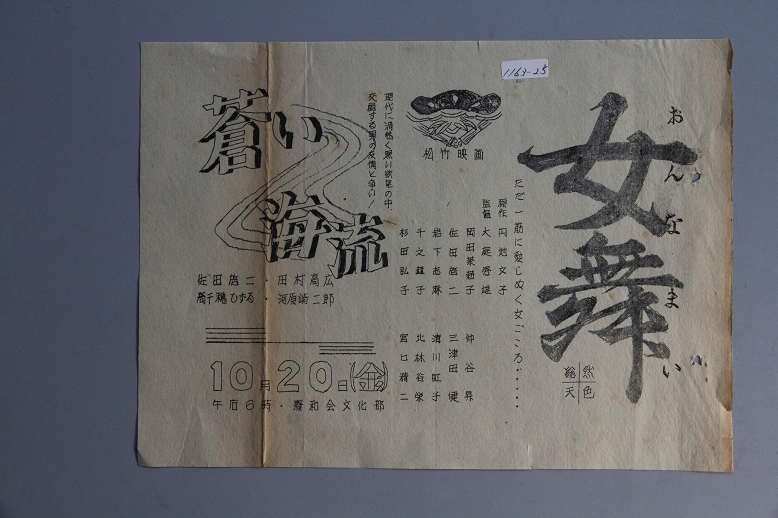 1169-25
おんなまい
女舞
総天
然色
ただ一筋に愛しぬく女ごころ・・・・・・
原作 円地文子
監督 大庭秀雄
岡田茉莉子 仲谷昇
佐田啓二 三津田健
岩下志麻 清川虹子
千之赫子 北林谷栄
杉田弘子 宮口精二
松竹映画
現代に渦巻く黒い欲望の中、
交錯する男の友情と争い!
蒼い
海流
佐田啓二・田村高広
高千穂ひづる・河原崎二郎
10月20日(金)
午后6時・和会文化部